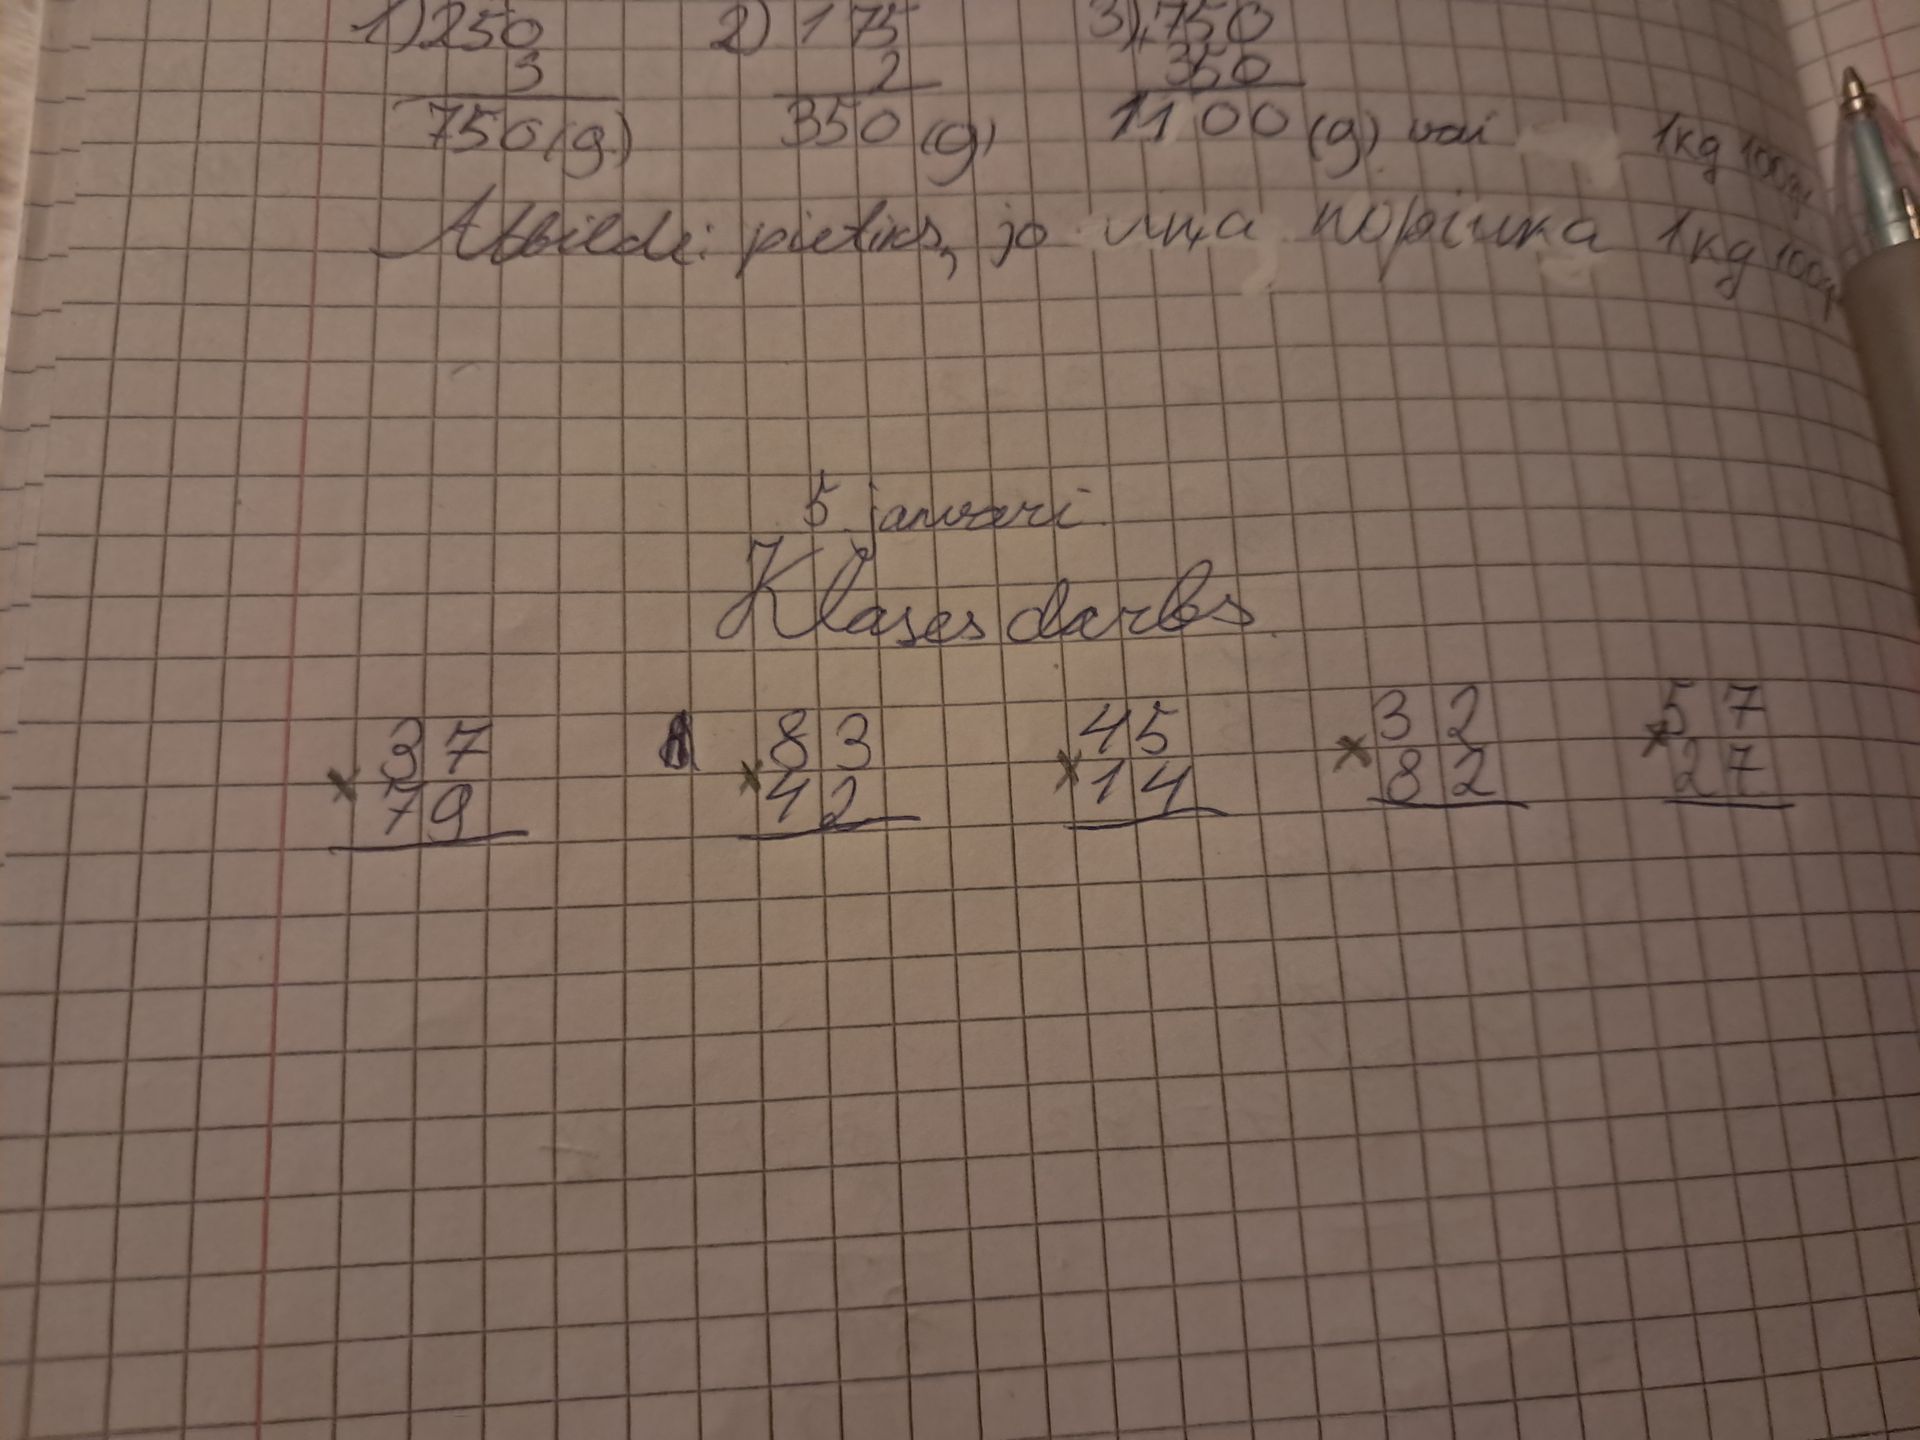 1) 250 2) 175 3) + 750
3 2 350
750 (g) 350 (g) 1100 (g) vai 1kg 100g
Atbilde: pietiks, jo viņa nopirka 1kg 100g
5 janvari
Klases darbs
37 83 45 32 57
× 79 × 42 × 14 × 82 × 27